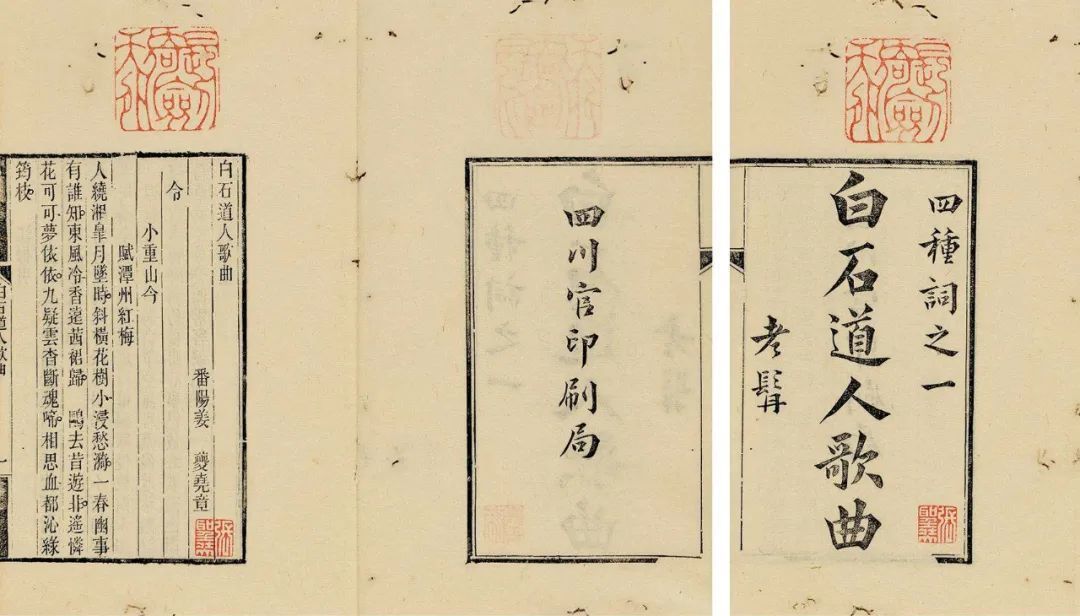 四種詞之一
白石道人歌曲
老髯
四川官印刷局
白石道人歌曲
番陽姜 夔堯章
令
小重山令
賦潭州紅梅
人繞湘臯月墜時斜橫花樹小浸愁漪一春幽事
有誰知東風冷香遠茜裙歸 鷗去昔遊非遙憐
花可可夢依依九疑雲杳斷魂啼相思血都沁綠
筠枝
白石道人歌曲 一